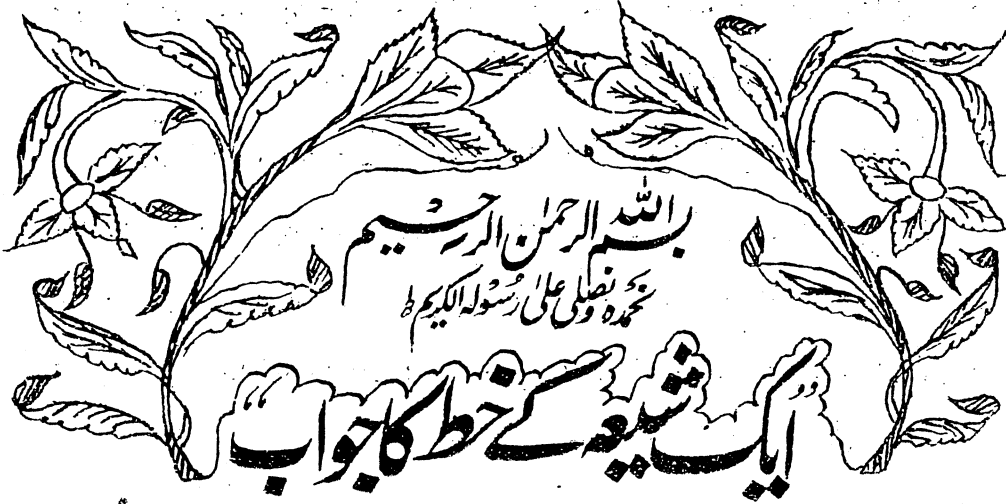 بسم اللہ الرحمٰن الرحیم
نحمدہ ونصلی علیٰ رسولہ الکریم ط
"ایک شیعہ کے خط کا جواب"